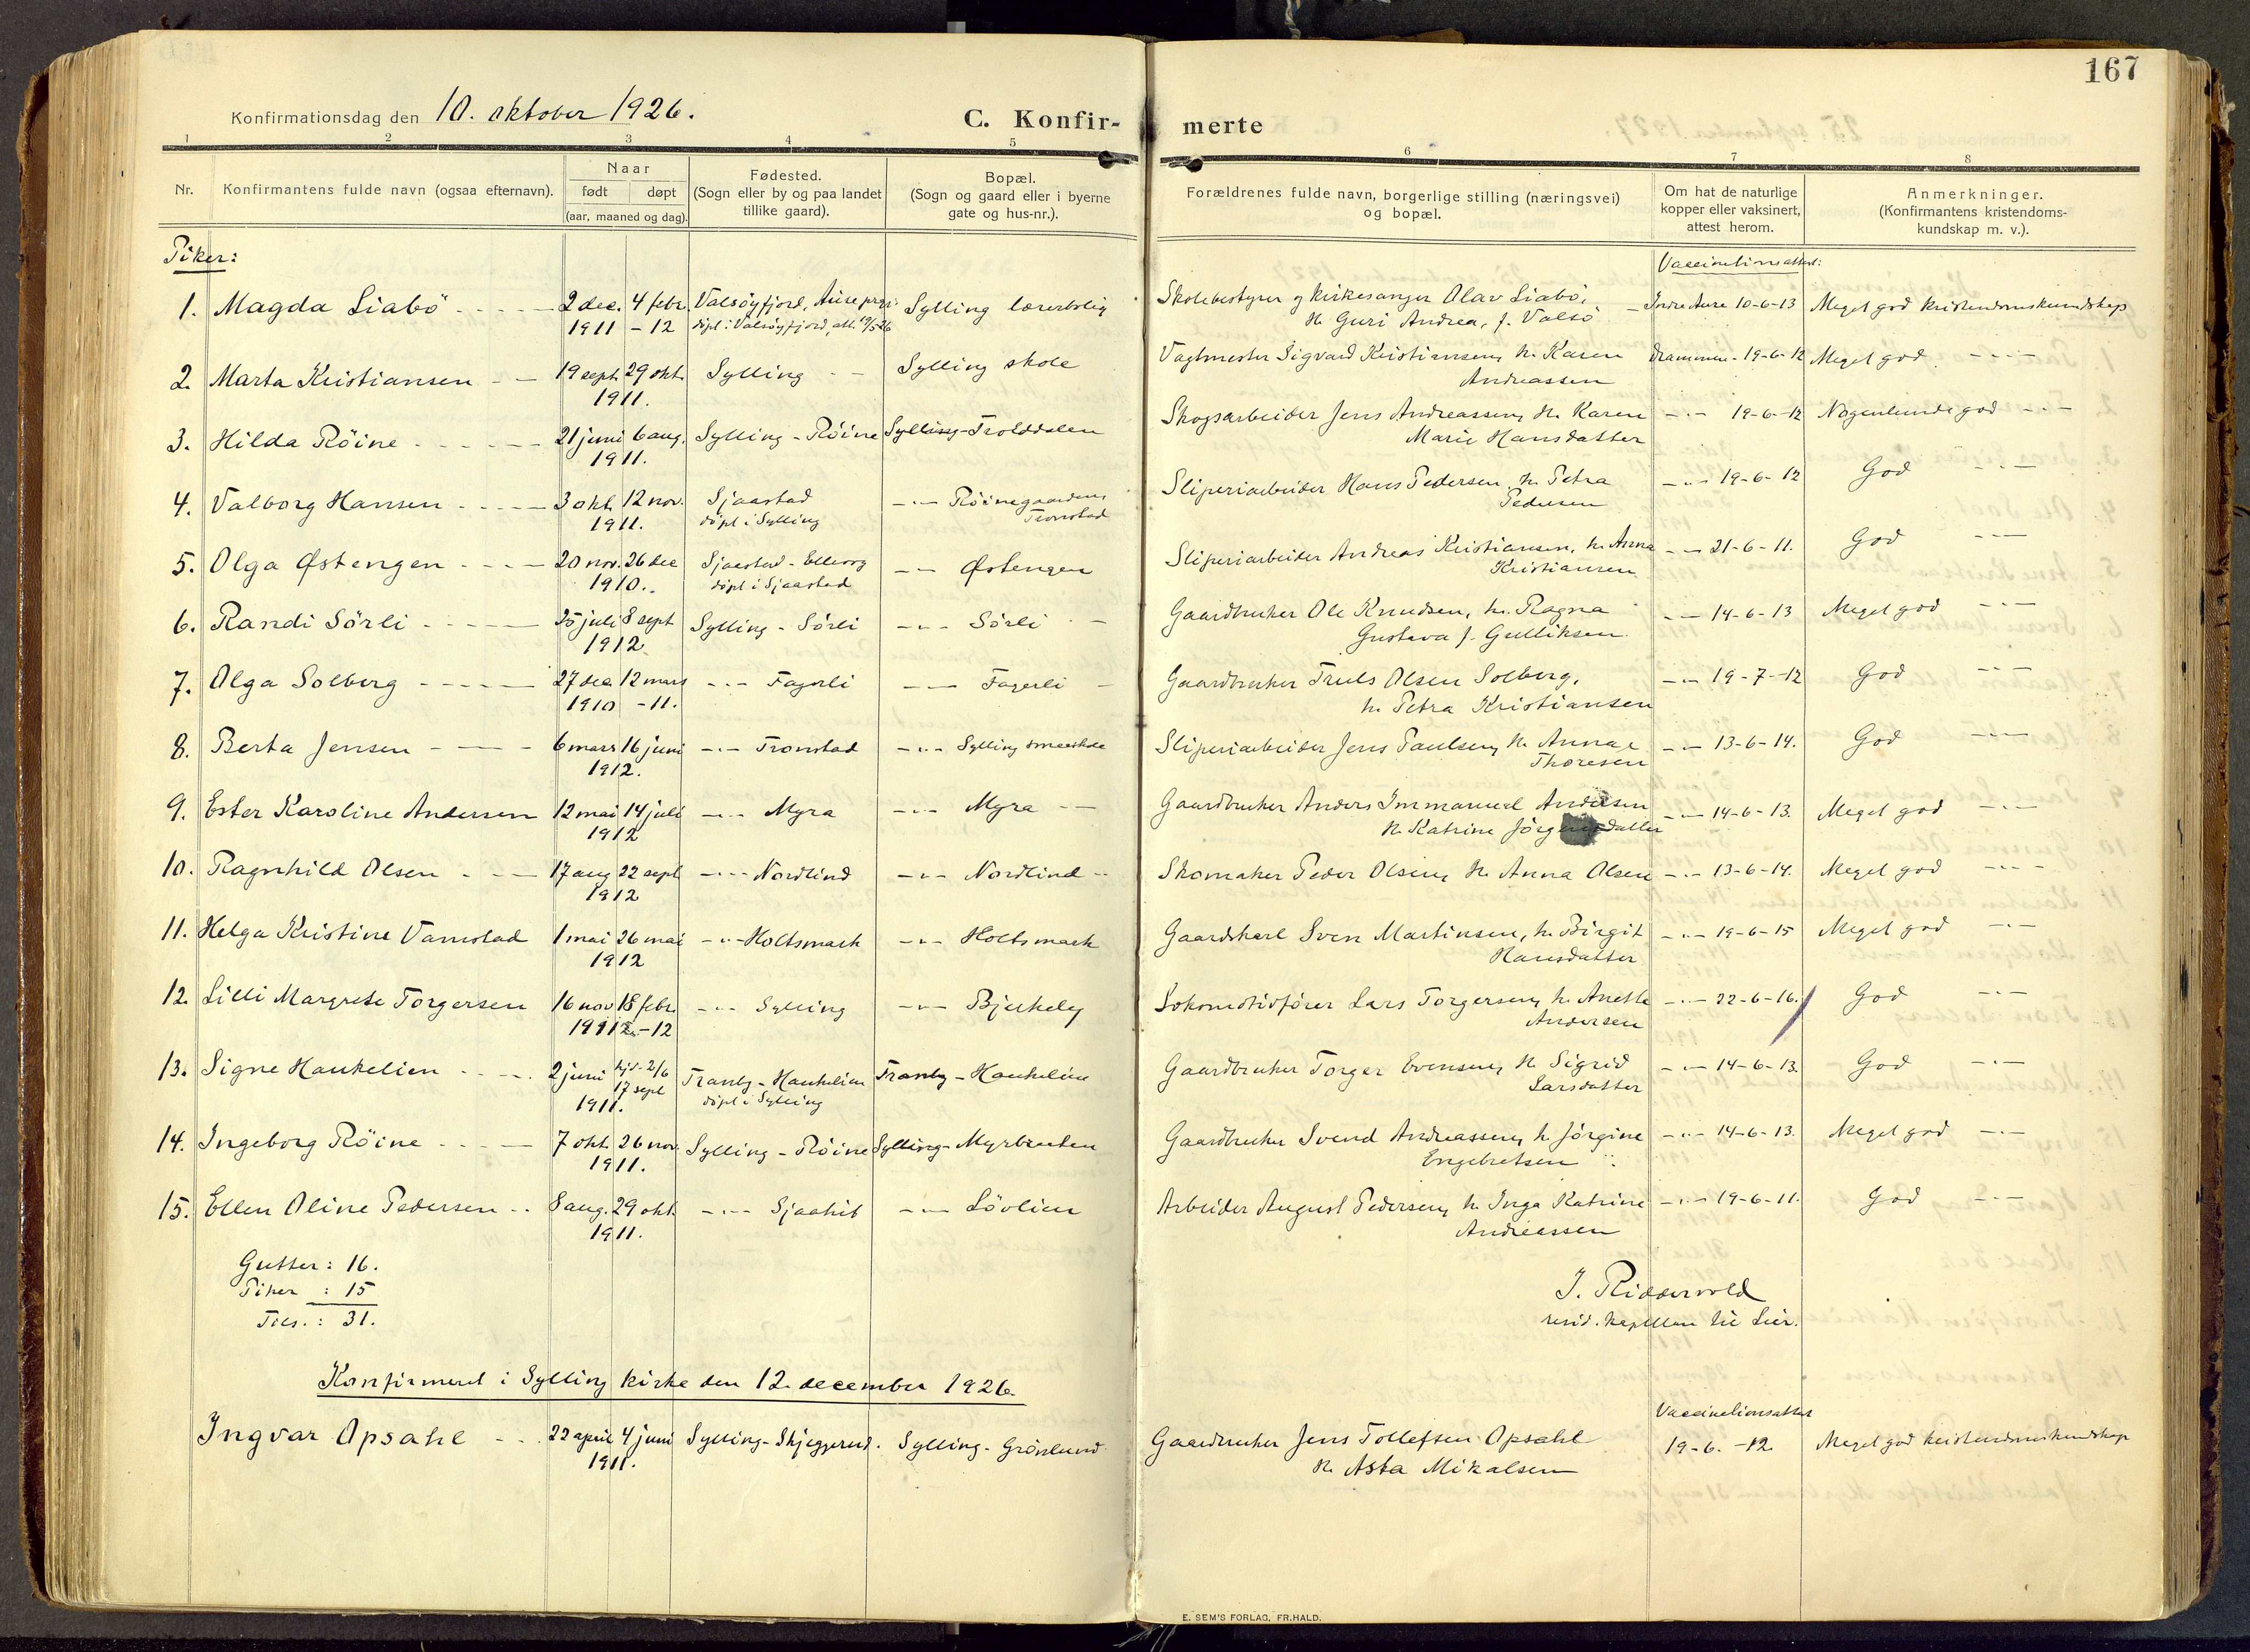 167
Konfirmationsdag den 10. oktober 1926.
C. Konfir-
merte
1 2 3 4 5 6 7 8
Nr.
Konfirmantens fulde navn (ogsaa efternavn).
Naar
født døpt
(aar, maaned og dag).
Fødested.
(Sogn eller by og paa landet
tillike gaard).
Bopæl.
(Sogn og gaard eller i byerne
gate og hus-nr.).
Forældrenes fulde navn, borgerlige stilling (næringsvei)
og bopæl.
Om hat de naturlige
kopper eller vaksinert,
attest herom.
Anmerkninger.
(Konfirmantens kristendoms-
kundskap m. v.).
Piker:
Vaccinationsattest:
1. Magda Liabö 2 dec. 4 febr. Valsöyfjord, Aure Sylling lærerbolig Skolebestyrer og kirkesanger Olav Liabö, Indre Aure 10-6-13 Meget god kristendomskundskap
1911 -12 döpt i Valsöyfjord, att. 19/5-26 h. Guri Andrea, f. Valsö
2. Marta Kristiansen 19 sept. 29 okt. Sylling Sylling skole Vagtmester Sigvard Kristiansen, h. Karen Drammen - 19-6-12 Meget god -"-
1911. Andreassen
3. Hilda Röine 21 juni 6 aug. Sylling - Röine Sylling-Trolddalen Skogsarbeider Jens Andreassen, h. Karen -"- 19-6-12 Nogenlunde god -"-
1911. Marie Hansdatter
4. Valborg Hansen 3 okt. 12 nov. Sjaastad -"- Röinegaardens Sliperiarbeider Hans Pedersen, h. Petra -"- 19-6-12 God -"-
1911. döpt i Sylling Tronstad Pedersen
5. Olga Østengen 20 nov. 26 dec Sjaastad - -"- Østengen Sliperiarbeider Andreas Kristiansen, h. Anna -"- 21-6-11. God -"-
1910. döpt i Sjaastad Kristiansen
6. Randi Sörli 25 juli 8 sept Sylling - Sörli -"- Sörli Gaardbruker Ole Knudsen, h. Ragna -"- 14-6-13 Meget god -"-
1912 Gustava f. Gulliksen
7. Olga Solberg 27 dec. 12 mars -"- Fagerli -"- Fagerli Gaardbruker Truls Olsen Solberg, -"- 19-7-12 God -"-
1910 -11. h. Petra Kristiansen
8. Berta Jensen 6 mars 16 juni -"- Tronstad -"- Sylling Sliperiarbeider Jens Paulsen, h. Anna -"- 13-6-14. God -"-
1912. Thoresen
9. Ester Karoline Andersen 12 mai 14 juli -"- Myra -"- Myra Gaardbruker Anders Immanuel Andersen -"- 14-6-13. Meget god -"-
1912 h. Katrine Jörgensdatter
10. Ragnhild Olsen 17 aug 22 sept -"- Nordlind -"- Nordlind Skomaker Peder Olsen, h. Anna Olsen -"- 13-6-14. Meget god -"-
1912
11. Helga Kristine Vamstad 1 mai 26 mai -"- Holtsmark -"- Holtsmark Gaardskarl Sven Martinsen, h. Birgit -"- 19-6-15 Meget god -"-
1912 Hansdatter
12. Lilli Margrete Torgersen 16 nov 18 febr. -"- Sylling -"- Bjerkely Lokomotivförer Lars Torgersen, h. Anette -"- 22-6-16. God -"-
1911 -12 Andersen
13. Signe Haukelien 2 juni hjd. 2/6 Tranby - Haukelien Tranby - Haukelien Gaardbruker Torger Evensen, h. Sigrid -"- 14-6-13. God -"-
17 sept
1911. döpt i Sylling Larsdatter
14. Ingeborg Röine 7 okt. 26 nov. Sylling - Röine Sylling - Myrbraaten Gaardbruker Svend Andreassen, h. Jörgine -"- 14-6-13. Meget god -"-
1911. Engebretsen
15. Ellen Oline Pedersen 8 aug. 29 okt. -"- -"- Lövlien Arbeider August Pedersen, h. Inga Katrine -"- 19-6-11. God -"-
1911. Andreassen
Gutter: 16.
Piker : 15
Tils.: 31.
J. Riddervold
resid. kapellan til Lier.
Konfirmeret i Sylling kirke den 12. december 1926.
Vaccinationsattest
Ingvar Opsahl 22 april 4 juni Sylling-Skjeggerud. Sylling - Grönlund Gaardbruker Jens Tollefsen Opsahl 19-6.-12. Meget god kristendomskundskap
1911. h. Asta Mikalsen
E. SEM'S FORLAG, FR.HALD.